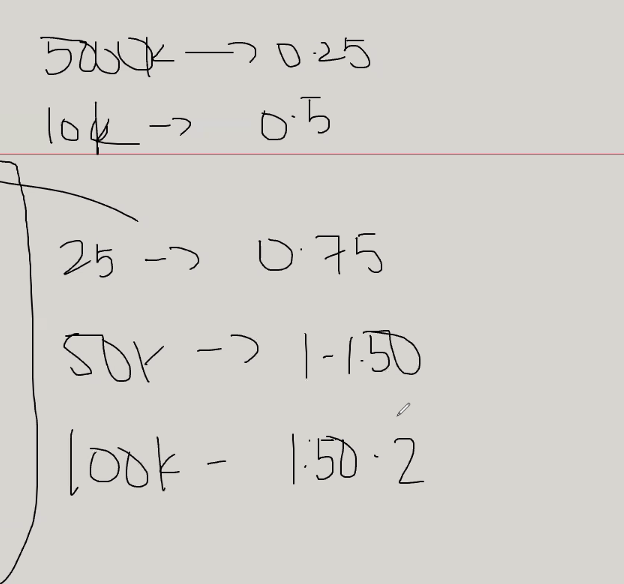 5000k → 0.25
10k → 0.5
25 → 0.75
50k → 1-1.50
100k - 1.50.2